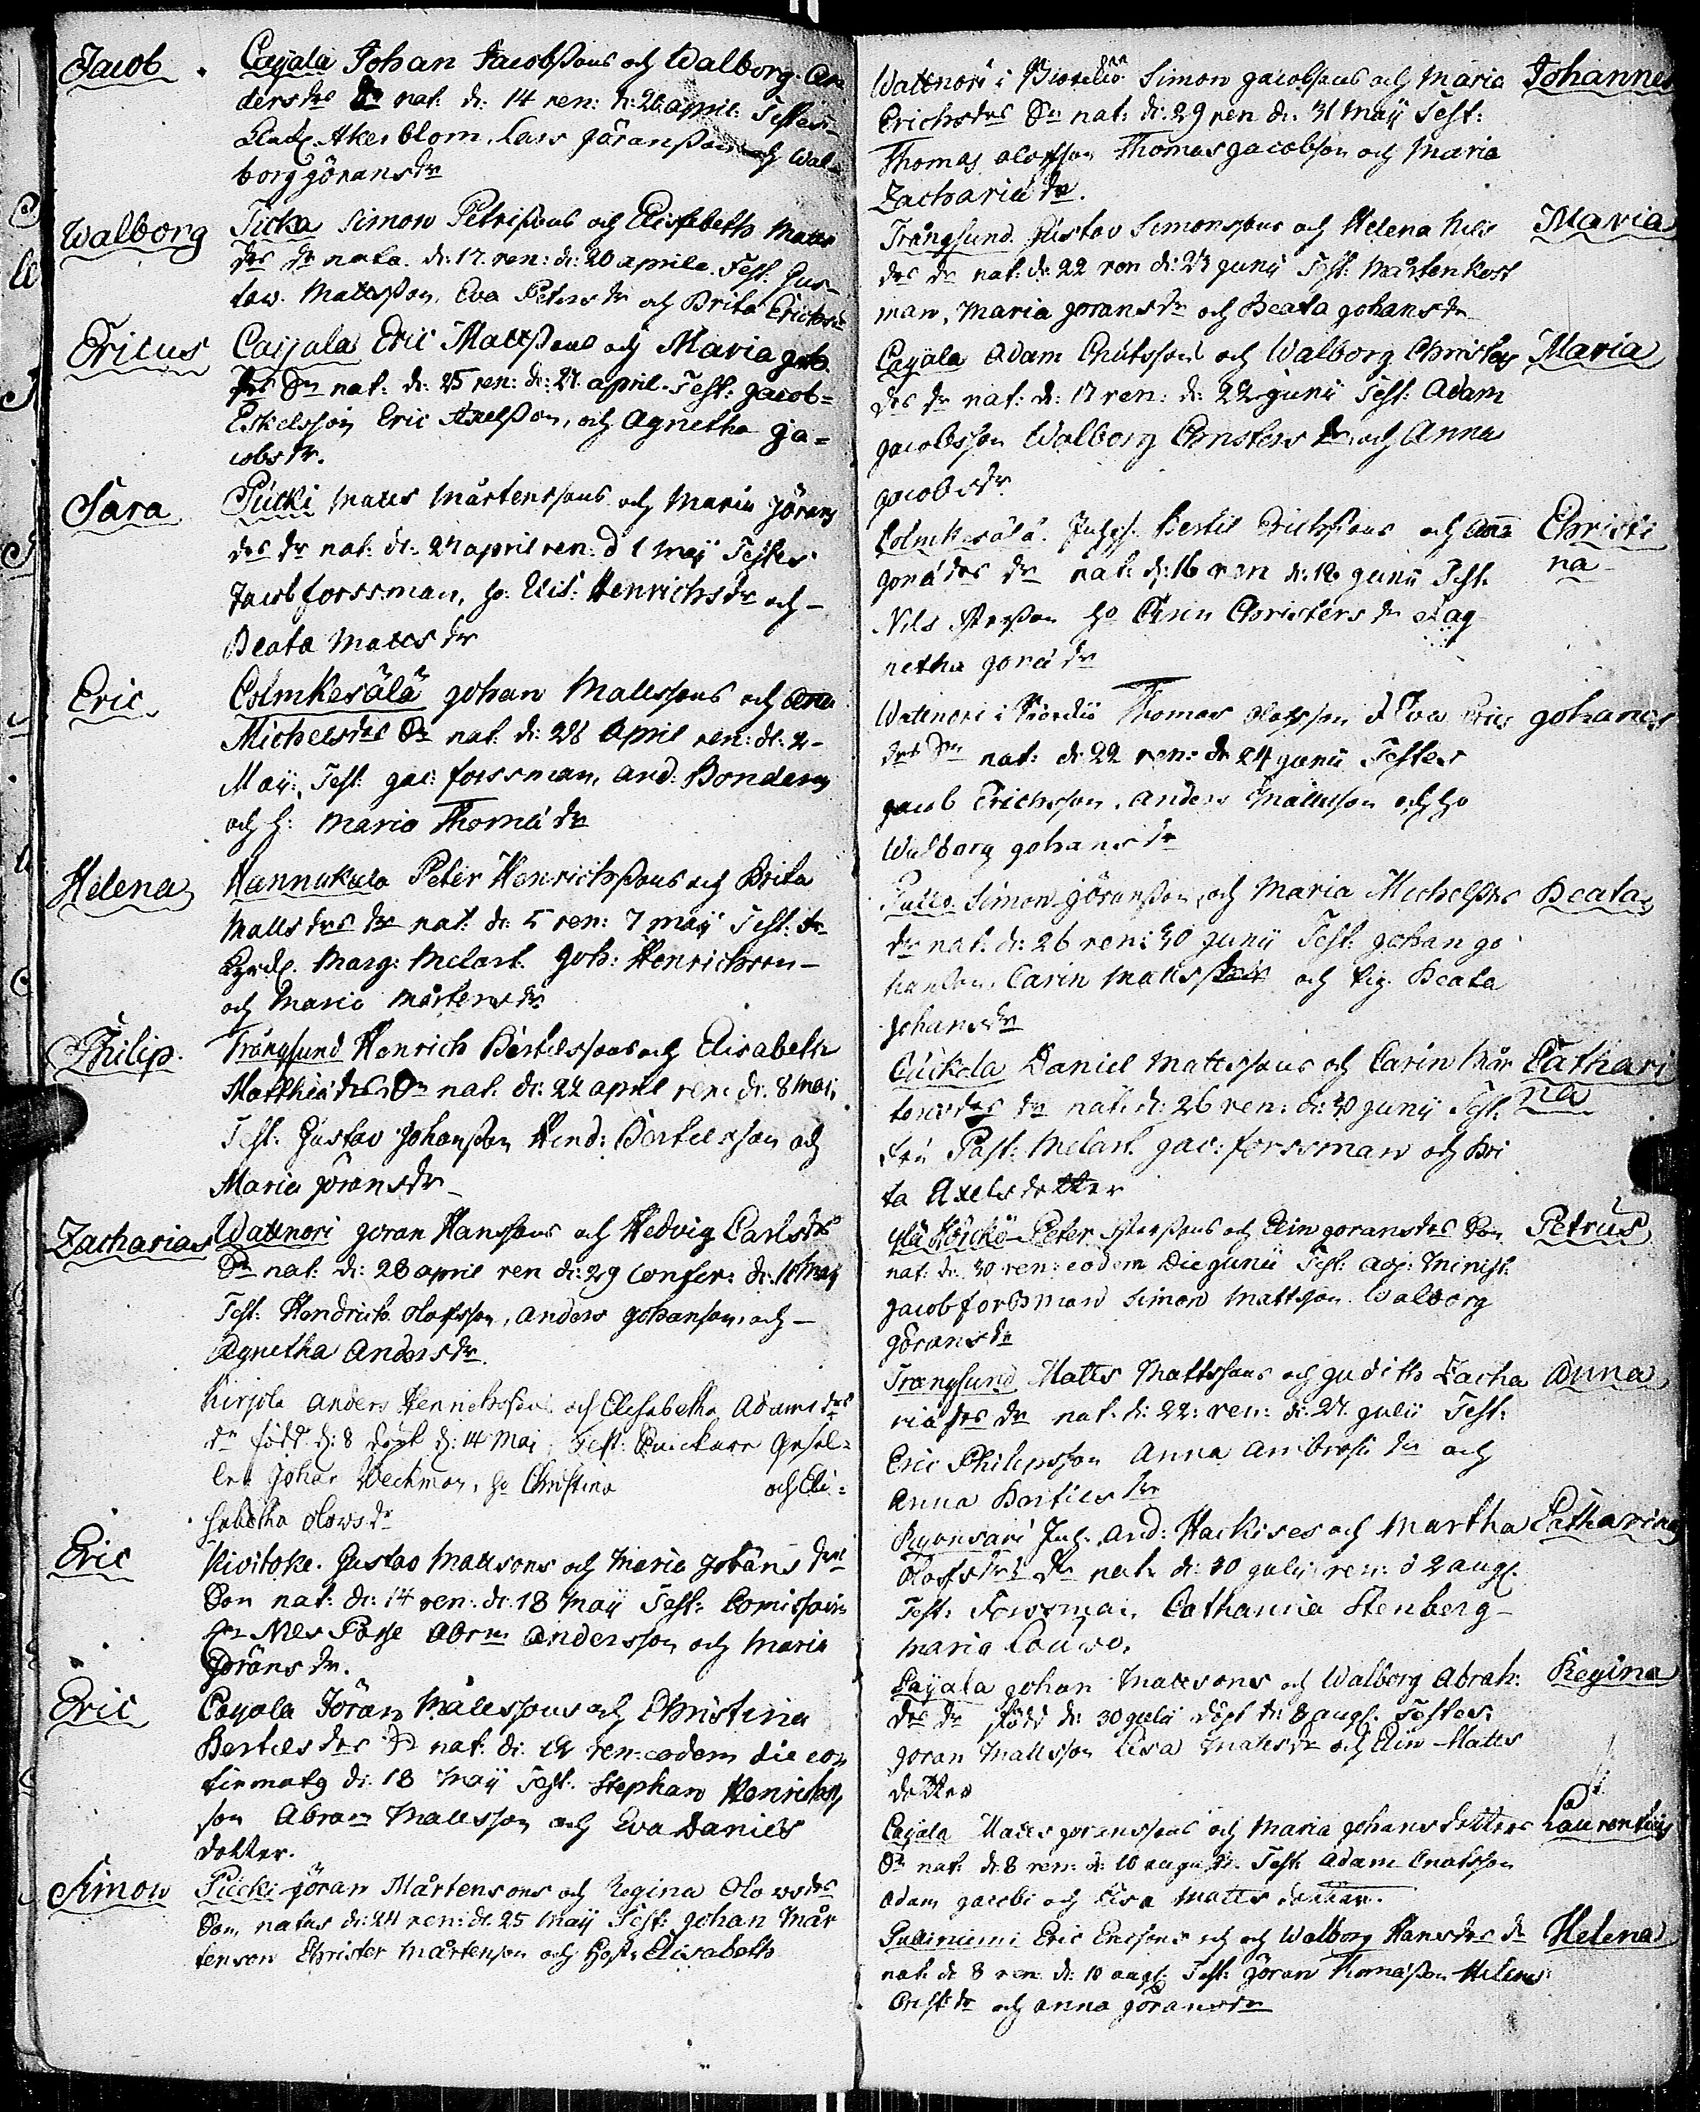 Jacob. Cayala Johan Jacobssons och Walborg An
dersdrs Dr nat. d: 14 ren: d: 26 april. Testes
Akerblom. Lars Göransson och Wal-
borg Göransdr
Walborg Ticka Simon Petrissons och Elisabeth Matts
drs dr nata. d: 17. ren: d: 20 aprile. Test. Gus-
taw. Mattsson, Eva Petersdr och Brita Erichsdr
Ericus Cayala Eric Mattssons och Maria
drs Sn nat: d: 25 ren: d: 27. april. Test: Jacob
Eskelsson Eric Axelsson, och Agnetha Ja-
cobsdr.
Sara Pücki Matts Mårtenssons och Maria Jörans
drs dr nat: d: 27 april ren: d 1 Maij Testes
Jacob forssman, h: Elis: Henrichsdr och
Beata Mattsdr
Eric Colmkesälä Johan Mattssons och Anna
Michelsdrs Sn nat: d: 28 April ren: d: 2
Maij. Test: Jac: forssman, And: Bonde
och h: Maria Thomædr
Helena Hannukala Peter Henrichssons och Brita
Mattsdrs dr nat: d: 5 ren: 7 maij Test:
Marg: Melart. Joh: Henrichsson
och Maria Mårtensdr
Philip. Trångsund Henrich Bertilssons och Elisabeth
Matthiædrs Sn nat: d: 27 april ren: d: 8 mai.
Test: Gustav Johansson Hend: Bertilsson och
Maria Göransdr
Zacharias Wattnori Joran Hanssons och Hedvig Carlsdrs
Sn nat: d: 28 april ren d: 29 confer: d: 10 maij
Test: Hendrich Olofsson, Anders Johansson, och
Agnetha Andersdr.
Kirjola Anders Hennichssons och Elisabetha Adamsdrs
dr född d: 8 döpt d: 14 Mai, Test: Gesel-
len Johan Weckman, h: Christina och Eli-
sabetha Olowsdr
Eric Kivitoke. Gustav Mattsons och Maria Johansdrs
Son nat: d: 14 ren: d: 18 Maij Test: Comissarien
Hr Nils Abrm Andersson och Maria
Göransdr.
Eric Cayala Jöran Mattssons och Christina
Bertilsdrs Sn nat: d: 12 ren: eodem die con
firmatg d: 18 Maij Test: Stephan Henrichs
son Abram Mattsson och Eva Daniels
dotter.
Simon Pücki Jöran Mårtensons och Regina Olowsdrs
Son natus d: 24 ren: d: 25 Maij Test: Johan Mår
tenson Christer Mårtenson och Elisabeth
Wattnori i Simon Jacobssons och Maria Johannes
Erichsdrs Sn nat: d: 29 ren d: 31 Maij Test:
Thomas Olofsson Thomas Jacobson och Maria
Zachariædr.
Trångsund. Gustav Simonssons och Helena Nils Maria
drs dr nat: d: 22 ren d: 23 Junij Test: Mårten Kost
man, Maria Joransdr och Beata Johansdr
Cayala Adam Cnutssons och Walborg Christers Maria
drs dr nat: d: 17 ren: d: 22 Junij Test: Adam
Jacobsson Walborg Christersdr och Anna
Jacobsdr
Colmkesälä. Bertil Erichssons och Anna Christi
drs dr nat: d: 16 ren d: 18 Junij Test: na
Nils h: Elin Christersdr Ag
netha dr
Wattnori i Thomas Olofsson Eva Erics Johannes
drs Sn nat: d: 22 ren: d: 24 Junij Testes
Jacob Erichsson, Anders Mattsson och h:
Walborg Johansdr
Simon Jöransson, och Maria Michelsdrs Beata
dr nat: d: 26 ren: 30 Junij Test: Johan Jo
hansson, Carin Matts och pig. Beata
Johansdr
Cuckola Daniel Mattssons och Carin Mår Cathari
tensdrs dr nat: d: 26 ren: d: 30 Junij Test: na
Past: Melart. Jac: forssman och Bri
ta Axelsdotter
Peter och Elin Joransdrs Son Petrus
nat: d: 30 ren: eodem Die Junii Test: adj: Minist:
Jacob forssman Simon Mattson. Walborg
Göransdr
Trangsund Matts Mattssons och Judith Zacha Anna
riædrs dr nat: d: 22: ren: d: 27. Julii Test:
Eric Philipsson Anna Ambrosi dr och
Anna Bertilsdr
And: Hackises och Martha Catharina
Olofsdrs dr nat: d: 30 Julij ren: d 2 aug.
Test: Forssman, Catharina Stenberg
Maria
Cayala Johan Mattsons och Walborg Abrah: Regina
drs dr född d: 30 Julij döpt d: 8 aug. Testes:
Joran Mattsson Lisa Mattsdr och Elin Matts
dotter
Cayala Matts Joranssons och Maria Johansdotters Laurentius
Sn nat: d: 8 ren: d: 10 Test: Adam Cnutsson
Adam Jacobi och Lisa Matts dotter.
Eric Ericsons och Walborg Hansdrs dr Helena
nat: d: 8 ren: d: 10 aug. Test: Jöran Thomæsson Helena
Crist:dr och Anna Göransdr